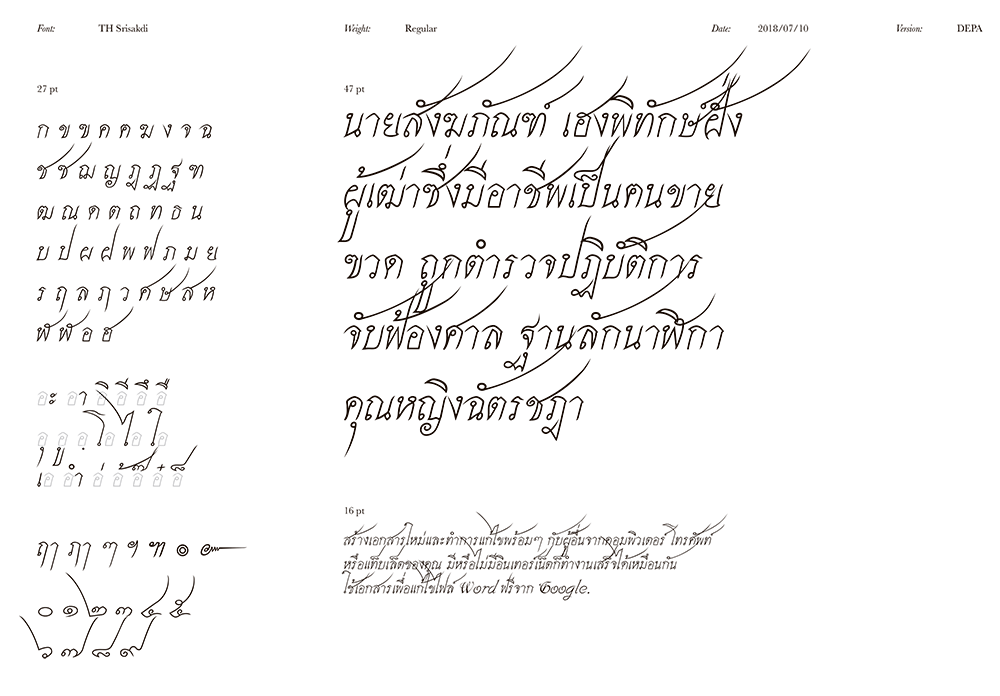 Font: TH Srisakdi Weight: Regular Date: 2018/07/10 Version: DEPA
27 pt
ก ข ฃ ค ฅ ฆ ง จ ฉ
ช ซ ฌ ญ ฎ ฏ ฐ ฑ
ฒ ณ ด ต ถ ท ธ น
บ ป ผ ฝ พ ฟ ภ ม ย
ร ฤ ล ฦ ว ศ ษ ส ห
ฬ ฬ อ ฮ
อะ อา อิ อี อึ อื
ฤๅ ฦๅ ๆ ฯ ฯ ๏ ๛
๐ ๑ ๒ ๓ ๔ ๕
๖ ๗ ๘ ๙
47 pt
นายสังฆภัณฑ์ เฮงพิทักษ์ฝั่ง
ผู้เฒ่าซึ่งมีอาชีพเป็นฅนขาย
ฃวด ถูกตำรวจปฏิบัติการ
จับฟ้องศาล ฐานลักนาฬิกา
คุณหญิงฉัตรชฎา
16 pt
สร้างเอกสารใหม่และทำการแก้ไขพร้อมๆ กับผู้อื่นจากคอมพิวเตอร์ โทรศัพท์
หรือแท็บเล็ตของคุณ มีหรือไม่มีอินเทอร์เน็ตก็ทำงานเสร็จได้เหมือนกัน
ใช้เอกสารเพื่อแก้ไขไฟล์ Word ฟรีจาก Google.